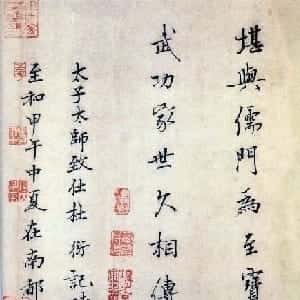 堪與儒門為至寶
武功家世久相傳
太子太師致仕杜衍記
至和甲午中夏在南都